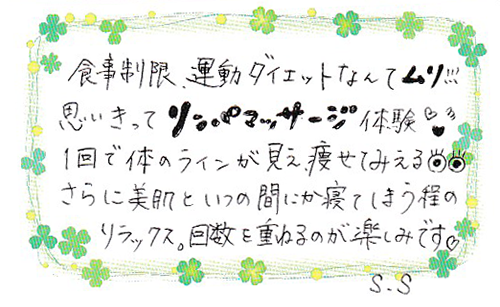 食事制限、運動ダイエットなんてムリ!!!
思いきってリンパマッサージ体験
1回で体のラインが見え、痩せてみえる
さらに美肌といつの間にか寝てしまう程の
リラックス。回数を重ねるのが楽しみです
S.S